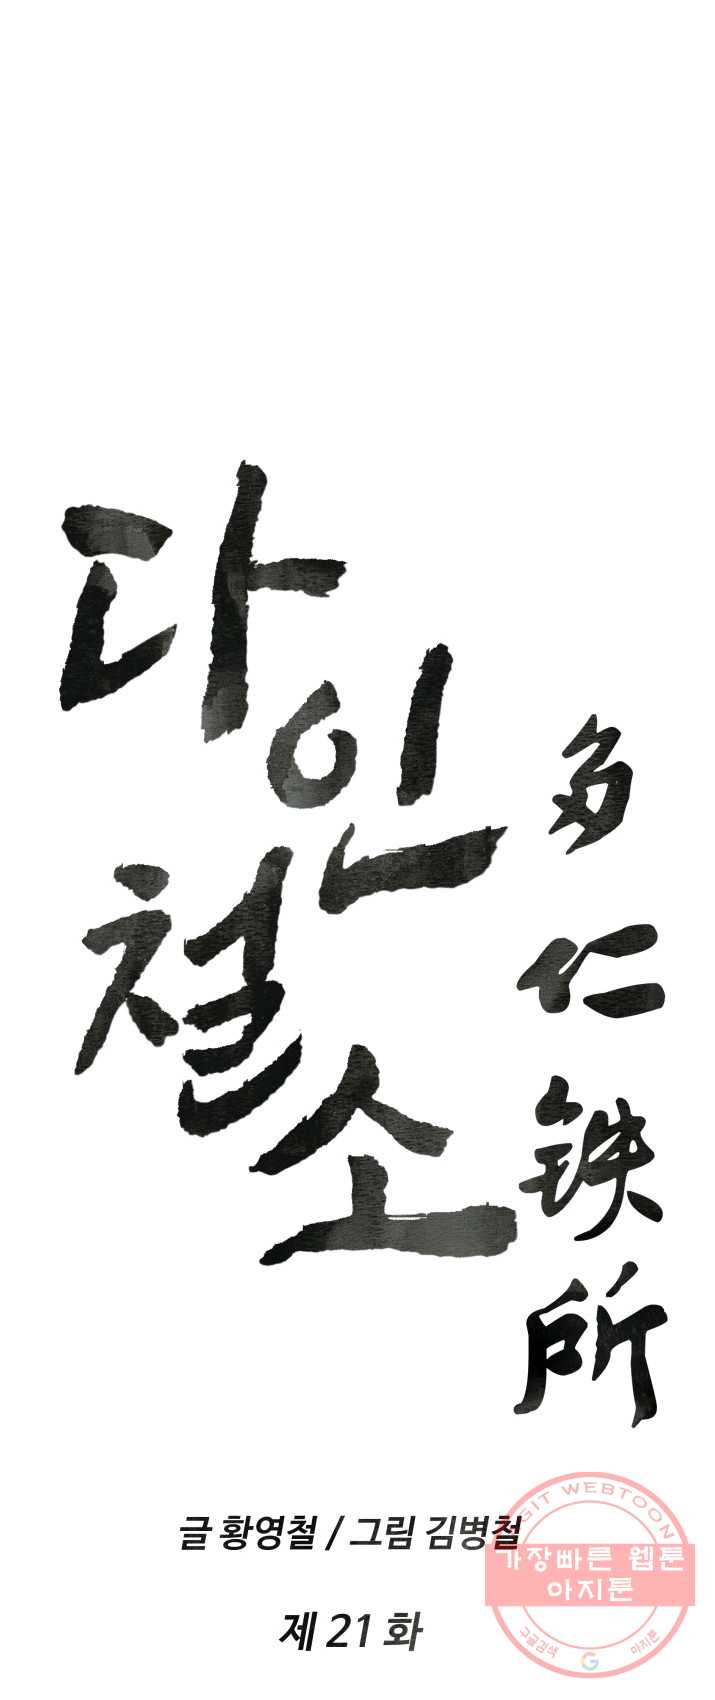 다인
철소
多仁鉄所
글 황영철 / 그림 김병철
제 21 화
AGIT WEBTOON
가장빠른 웹툰
아지툰
구글검색 G 아지툰